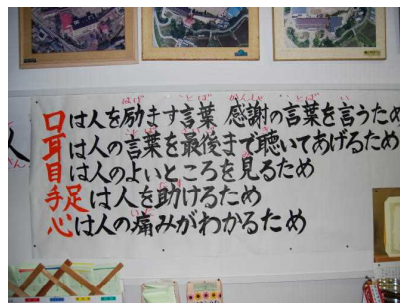 口は人を励ます言葉 感謝の言葉を言うため
耳は人の言葉を最後まで聴いてあげるため
目は人のよいところを見るため
手足は人を助けるため
心は人の痛みがわかるため
人